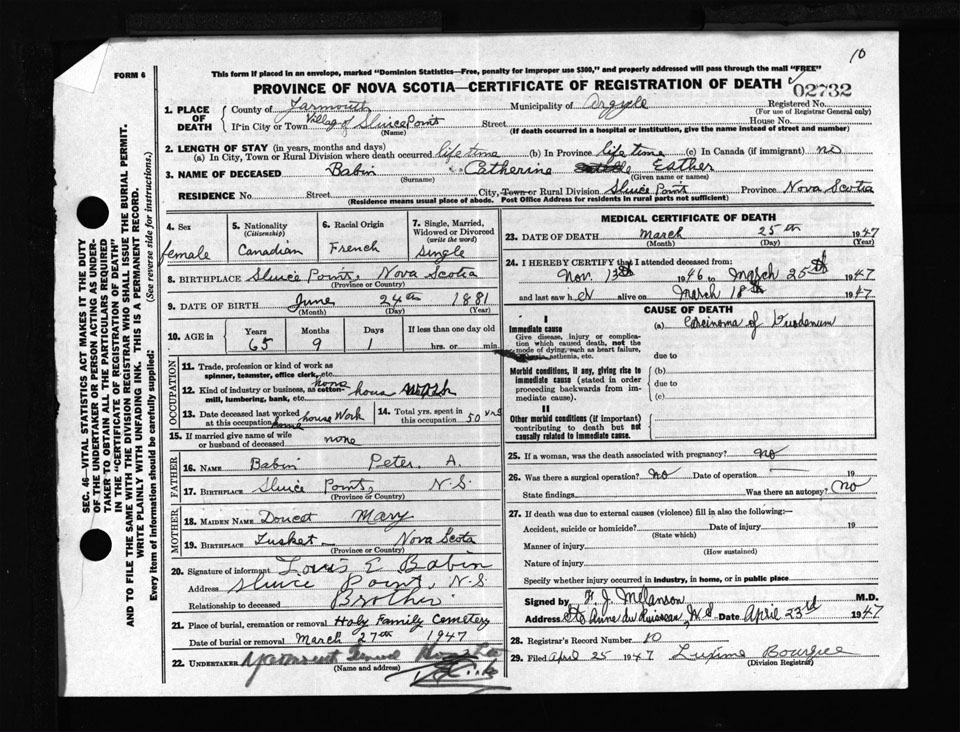 10
FORM 6
This form if placed in an envelope, marked "Dominion Statistics—Free, penalty for improper use $300," and properly addressed will pass through the mail "FREE"
PROVINCE OF NOVA SCOTIA—CERTIFICATE OF REGISTRATION OF DEATH
02732
1. PLACE OF DEATH
County of Yarmouth Municipality of Argyle Registered No.
(For use of Registrar General only)
If in City or Town Village of Sluice Point Street House No.
(Name) (If death occurred in a hospital or institution, give the name instead of street and number)
2. LENGTH OF STAY (in years, months and days)
(a) In City, Town or Rural Division where death occurred life time (b) In Province life time (c) In Canada (if immigrant) no
3. NAME OF DECEASED Babin Catherine Esther
(Surname) (Given name or names)
RESIDENCE No. Street City, Town or Rural Division Sluice Point Province Nova Scotia
(Residence means usual place of abode. Post Office Address for residents in rural parts not sufficient)
SEC. 46—VITAL STATISTICS ACT MAKES IT THE DUTY
OF THE UNDERTAKER OR PERSON ACTING AS UNDER-
TAKER TO OBTAIN ALL THE PARTICULARS REQUIRED
IN THE "CERTIFICATE OF REGISTRATION OF DEATH"
AND TO FILE THE SAME WITH THE DIVISION REGISTRAR WHO SHALL ISSUE THE BURIAL PERMIT.
WRITE PLAINLY WITH UNFADING INK. THIS IS A PERMANENT RECORD.
Every item of information should be carefully supplied: (See reverse side for instructions.)
4. Sex
female
5. Nationality
(Citizenship)
Canadian
6. Racial Origin
French
7. Single, Married,
Widowed or Divorced
(write the word)
Single
8. BIRTHPLACE Sluice Point, Nova Scotia
(Province or Country)
9. DATE OF BIRTH June 24th 1881
(Month) (Day) (Year)
10. AGE in
Years Months Days If less than one day old
65 9 1 hrs. or min.
OCCUPATION
11. Trade, profession or kind of work as
spinner, teamster, office clerk, etc.
12. Kind of industry or business, as cotton-
mill, lumbering, bank, etc.
13. Date deceased last worked
at this occupation house Work
14. Total yrs. spent in
this occupation 50 yrs
15. If married give name of wife
or husband of deceased none
FATHER
16. NAME Babin Peter. A.
17. BIRTHPLACE Sluice Point, N.S.
(Province or Country)
MOTHER
18. MAIDEN NAME Doucet Mary
19. BIRTHPLACE Tusket Nova Scotia
(Province or Country)
20. Signature of informant Louis E Babin
Address Sluice Point, N.S.
Relationship to deceased Brother
21. Place of burial, cremation or removal Holy Family Cemetery
Date of burial or removal March 27th 1947
22. UNDERTAKER
(Name and address)
MEDICAL CERTIFICATE OF DEATH
23. DATE OF DEATH March 25th 1947
(Month) (Day) (Year)
24. I HEREBY CERTIFY that I attended deceased from:
Nov. 13th 1946 to March 25th 1947
and last saw her alive on March 18th 1947
CAUSE OF DEATH
I
Immediate cause
Give disease, injury or complica-
tion which caused death, not the
mode of dying, such as heart failure,
asthenia, etc.
(a) Carcinoma of Duodenum
due to
Morbid conditions, if any, giving rise to
immediate cause (stated in order
proceeding backwards from im-
mediate cause).
(b)
due to
(c)
II
Other morbid conditions (if important)
contributing to death but not
causally related to immediate cause.
25. If a woman, was the death associated with pregnancy? no
26. Was there a surgical operation? no Date of operation 19
State findings Was there an autopsy? no
27. If death was due to external causes (violence) fill in also the following:—
Accident, suicide or homicide? Date of injury 19
(State which)
Manner of injury
(How sustained)
Nature of injury
Specify whether injury occurred in industry, in home, or in public place
Signed by F. J. Melanson M.D.
Address Ste Anne du Ruisseau, N.S. Date April 23rd 1947
28. Registrar's Record Number 10
29. Filed April 25 1947
(Division Registrar)